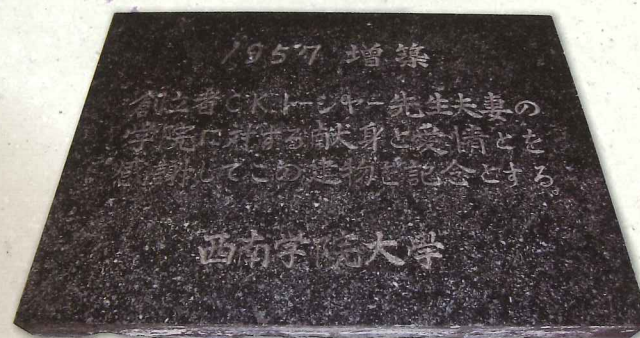 1957 増築
創立者C.K.ドージャー先生夫妻の
学院に対する献身と愛情とを
感謝してこの建物を記念とする。
西南学院大学